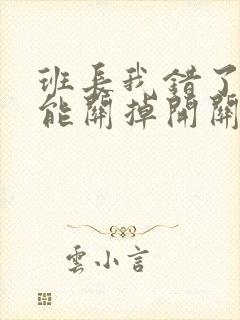 班長我錯了
能關掉開關
雲小言